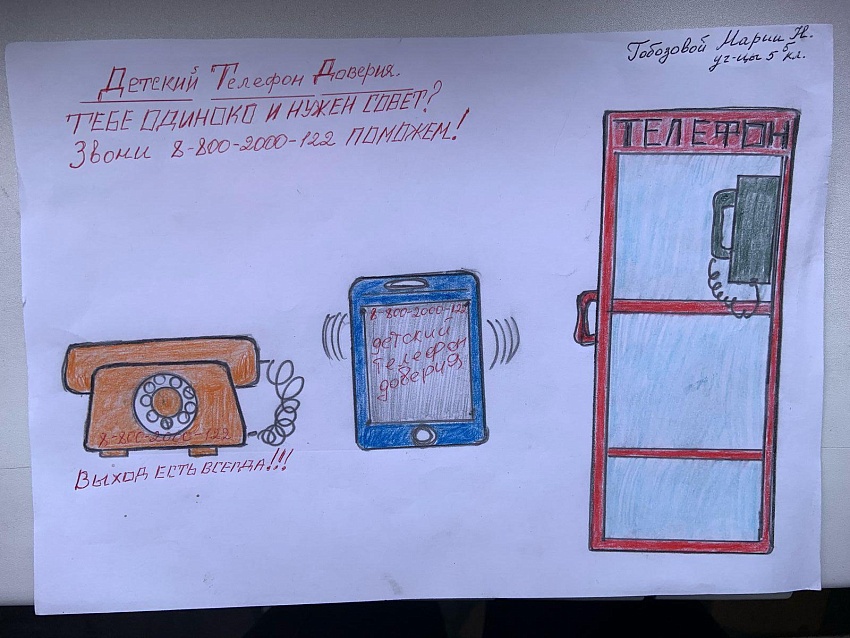 Детский Телефон Доверия.
ТЕБЕ ОДИНОКО И НУЖЕН СОВЕТ?
Звони 8-800-2000-122 ПОМОЖЕМ!
Тобозовой Марии Н.
уч-цы 5 б кл.
ТЕЛЕФОН
8-800-2000-122
детский
телефон
доверия
8-800-2000-122
ВЫХОД ЕСТЬ ВСЕГДА!!!